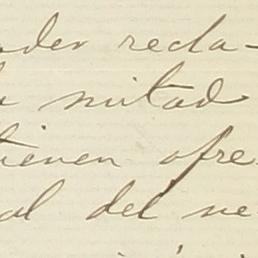 der recla-
mitad
tienen ofre
al del ne